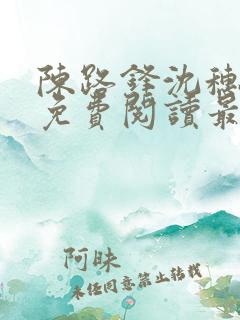 陳路鋒沈穗
免費閱讀最
阿昧
未经同意禁止转载